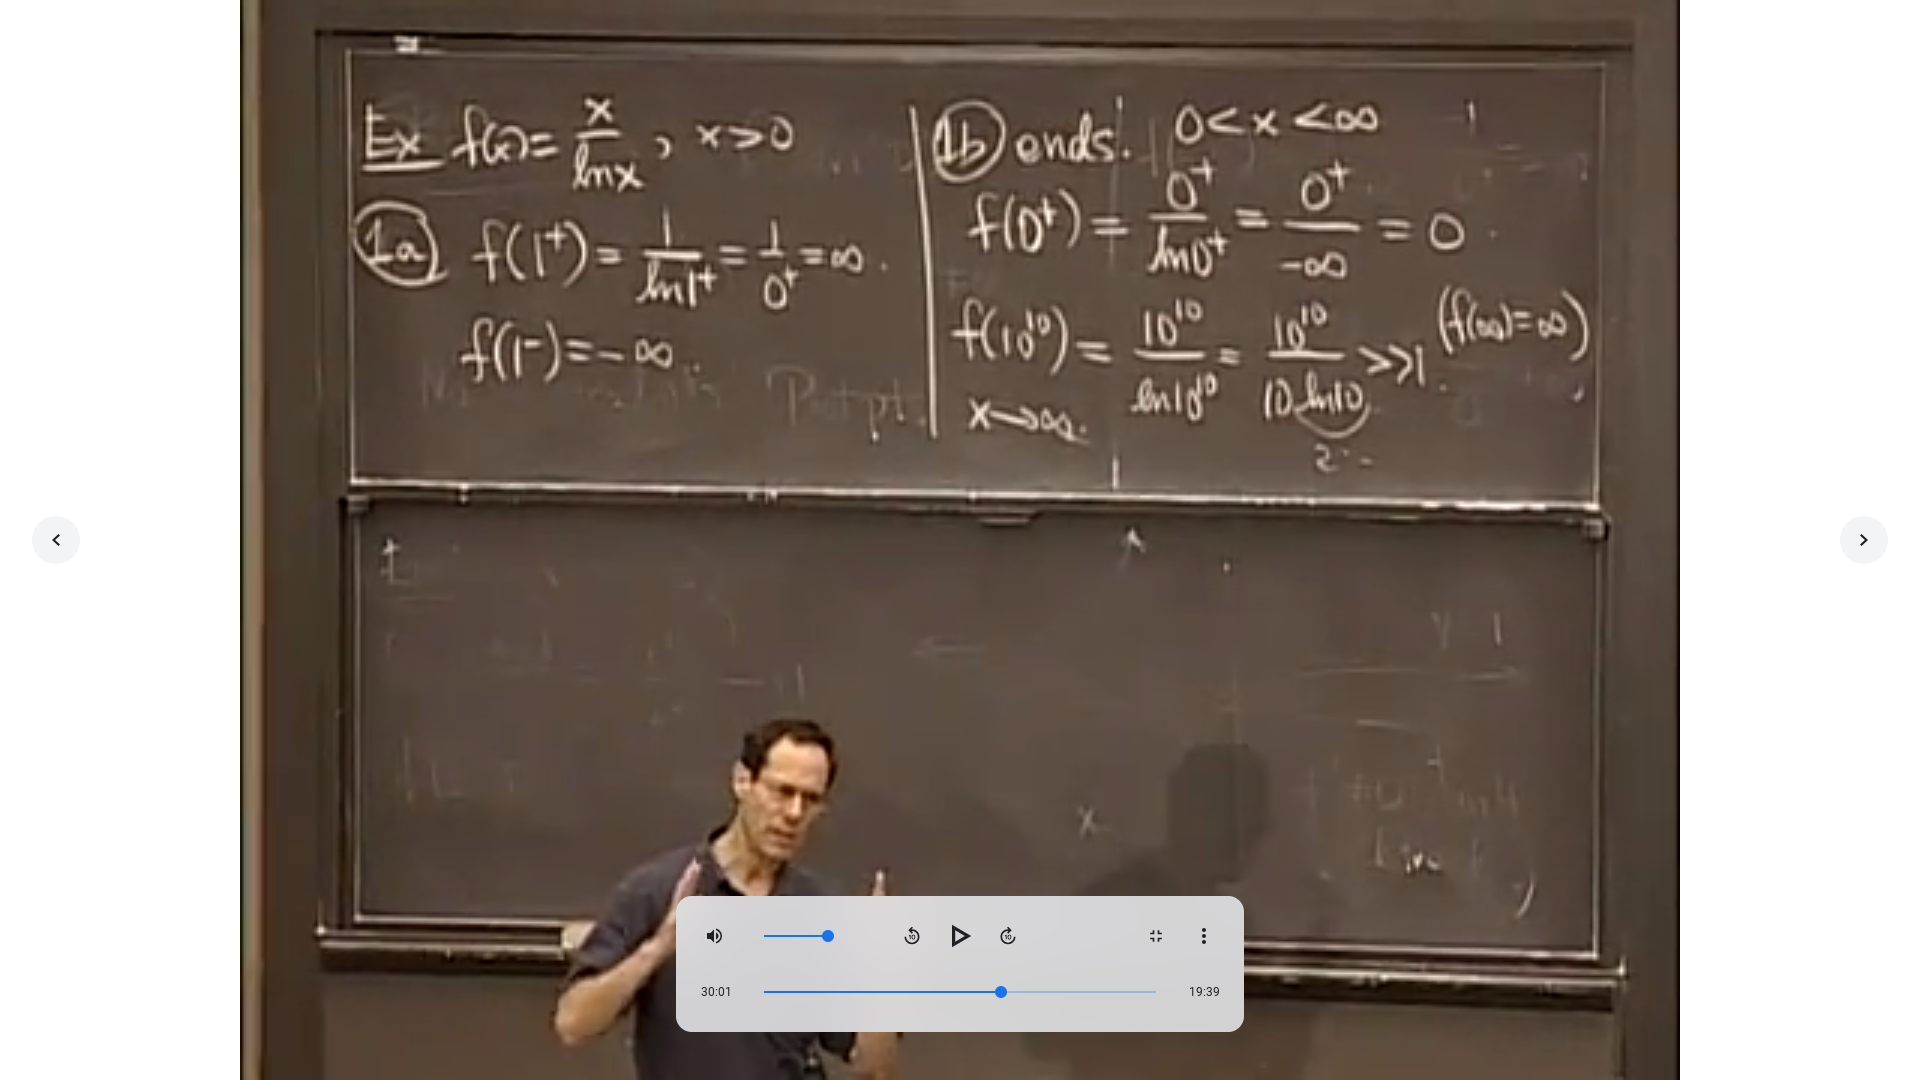 Ex f(x) = x/ln x, x > 0
1a f(1⁺) = 1/ln 1⁺ = 1/0⁺ = ∞.
f(1⁻) = -∞.
1b ends. 0 < x < ∞
f(0⁺) = 0⁺/ln 0⁺ = 0⁺/-∞ = 0
f(10¹⁰) = 10¹⁰/ln 10¹⁰ = 10¹⁰/10 ln 10 >> 1. (f(∞) = ∞)
x → ∞.
30:01
19:39